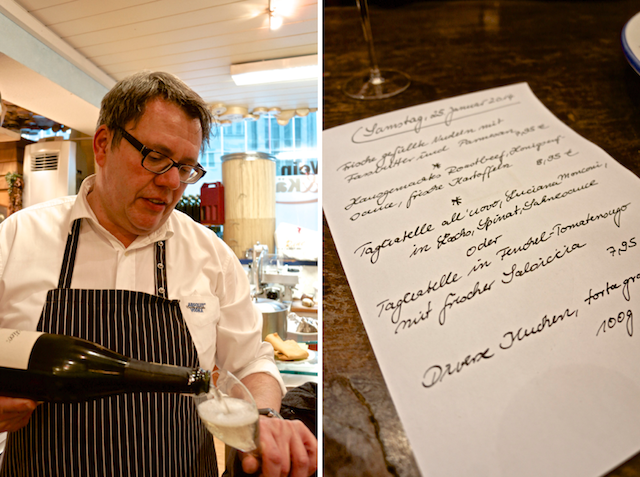 Wein
& Ka
Samstag, 25. Januar 2014
Frische gefüllte Nudeln mit
und Parmesan, 7,95 €
*
Hausgemachtes Roastbeef,
Sauce, frische Kartoffeln 8,95 €
*
Tagliatelle all'uovo, Luciana Mosconi,
in Lachs, Spinat, Sahnesauce
oder
Tagliatelle in Fenchel-Tomatensugo
mit frischer Salsiccia 7,95
Diverse Kuchen, torta
100g